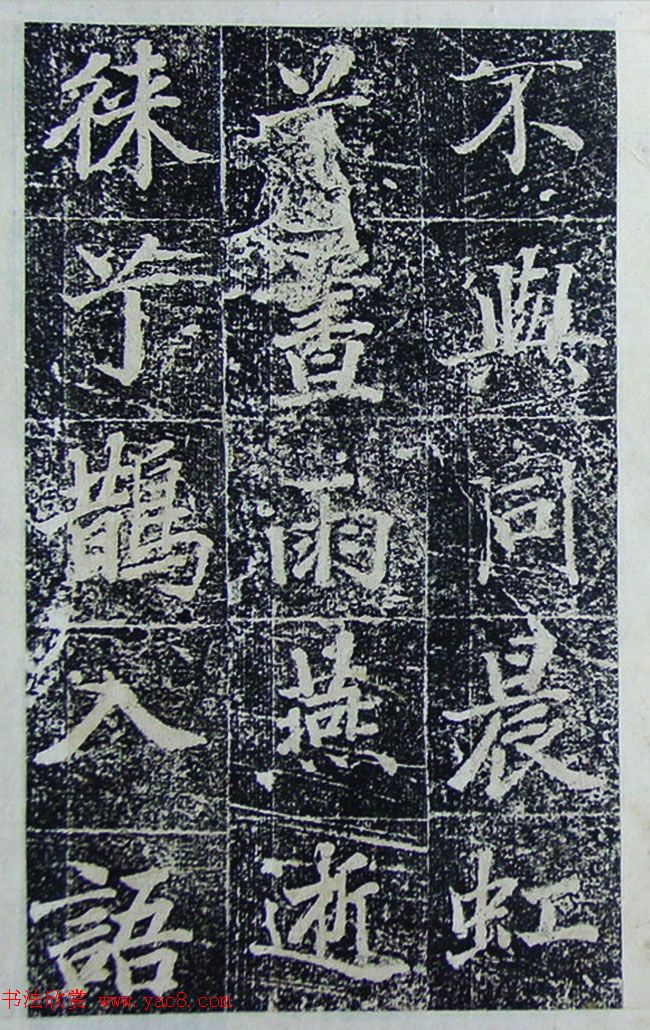 不與同晨虹
雨燕逝
徠兮鵲入語
书法欣赏 www.yac8.com